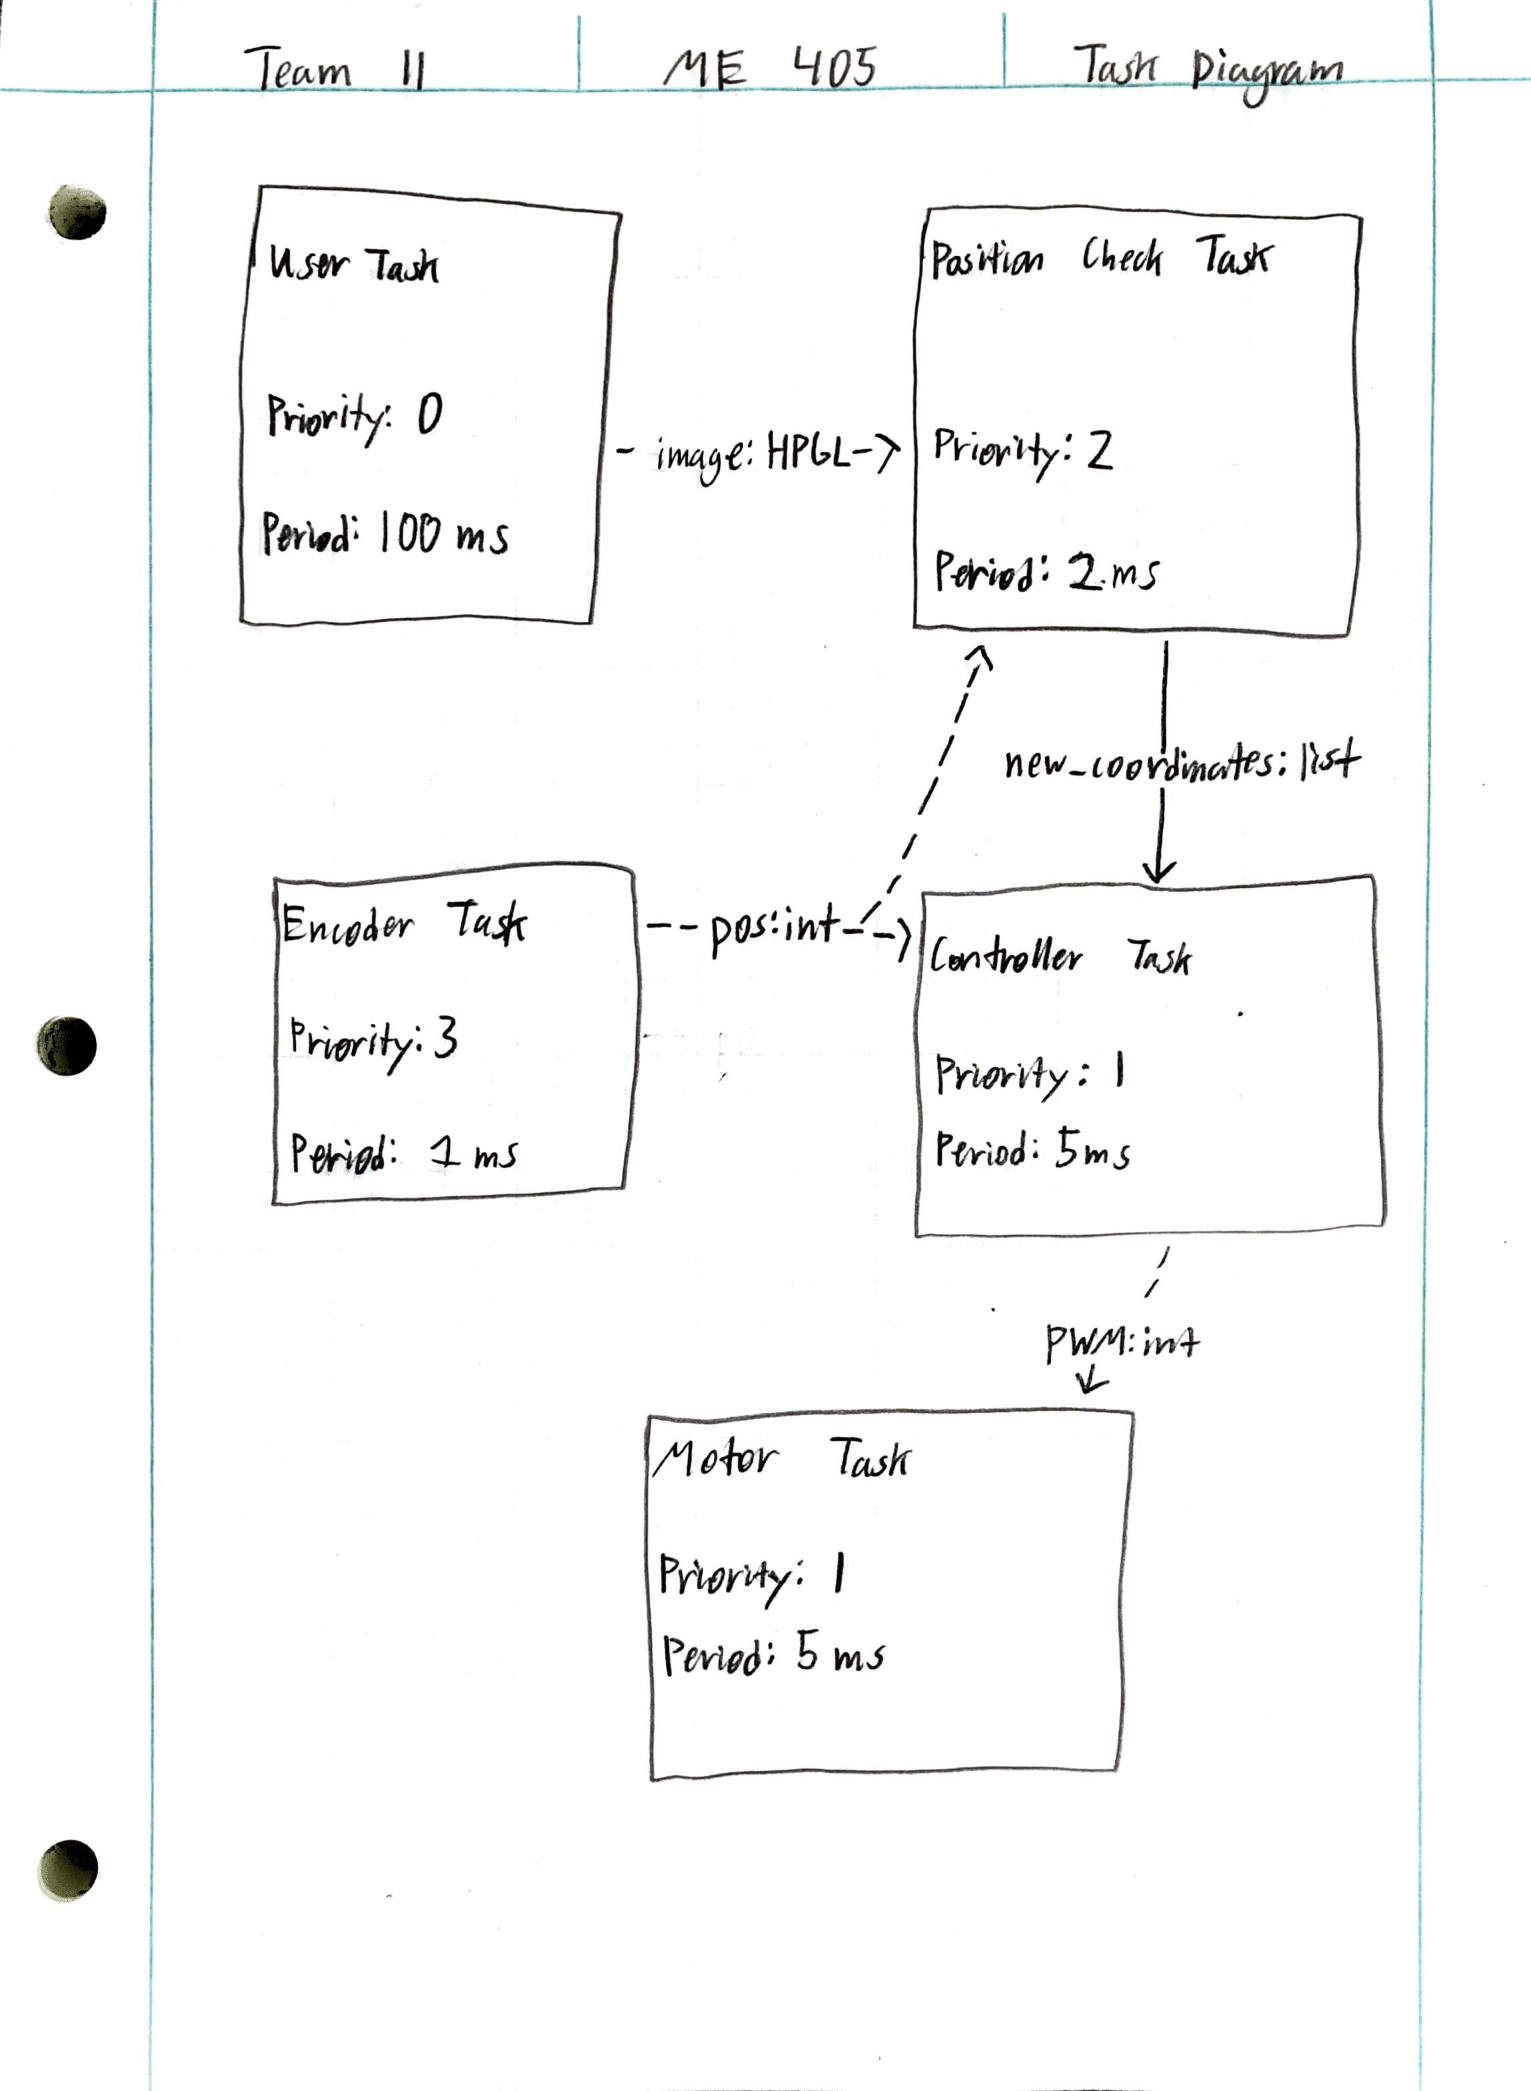 Team 11 ME 405 Task Diagram
User Task
Priority: 0
Period: 100 ms
image: HPGL
Position Check Task
Priority: 2
Period: 2 ms
new_coordinates: list
Encoder Task
Priority: 3
Period: 1 ms
pos: int
Controller Task
Priority: 1
Period: 5 ms
PWM: int
Motor Task
Priority: 1
Period: 5 ms